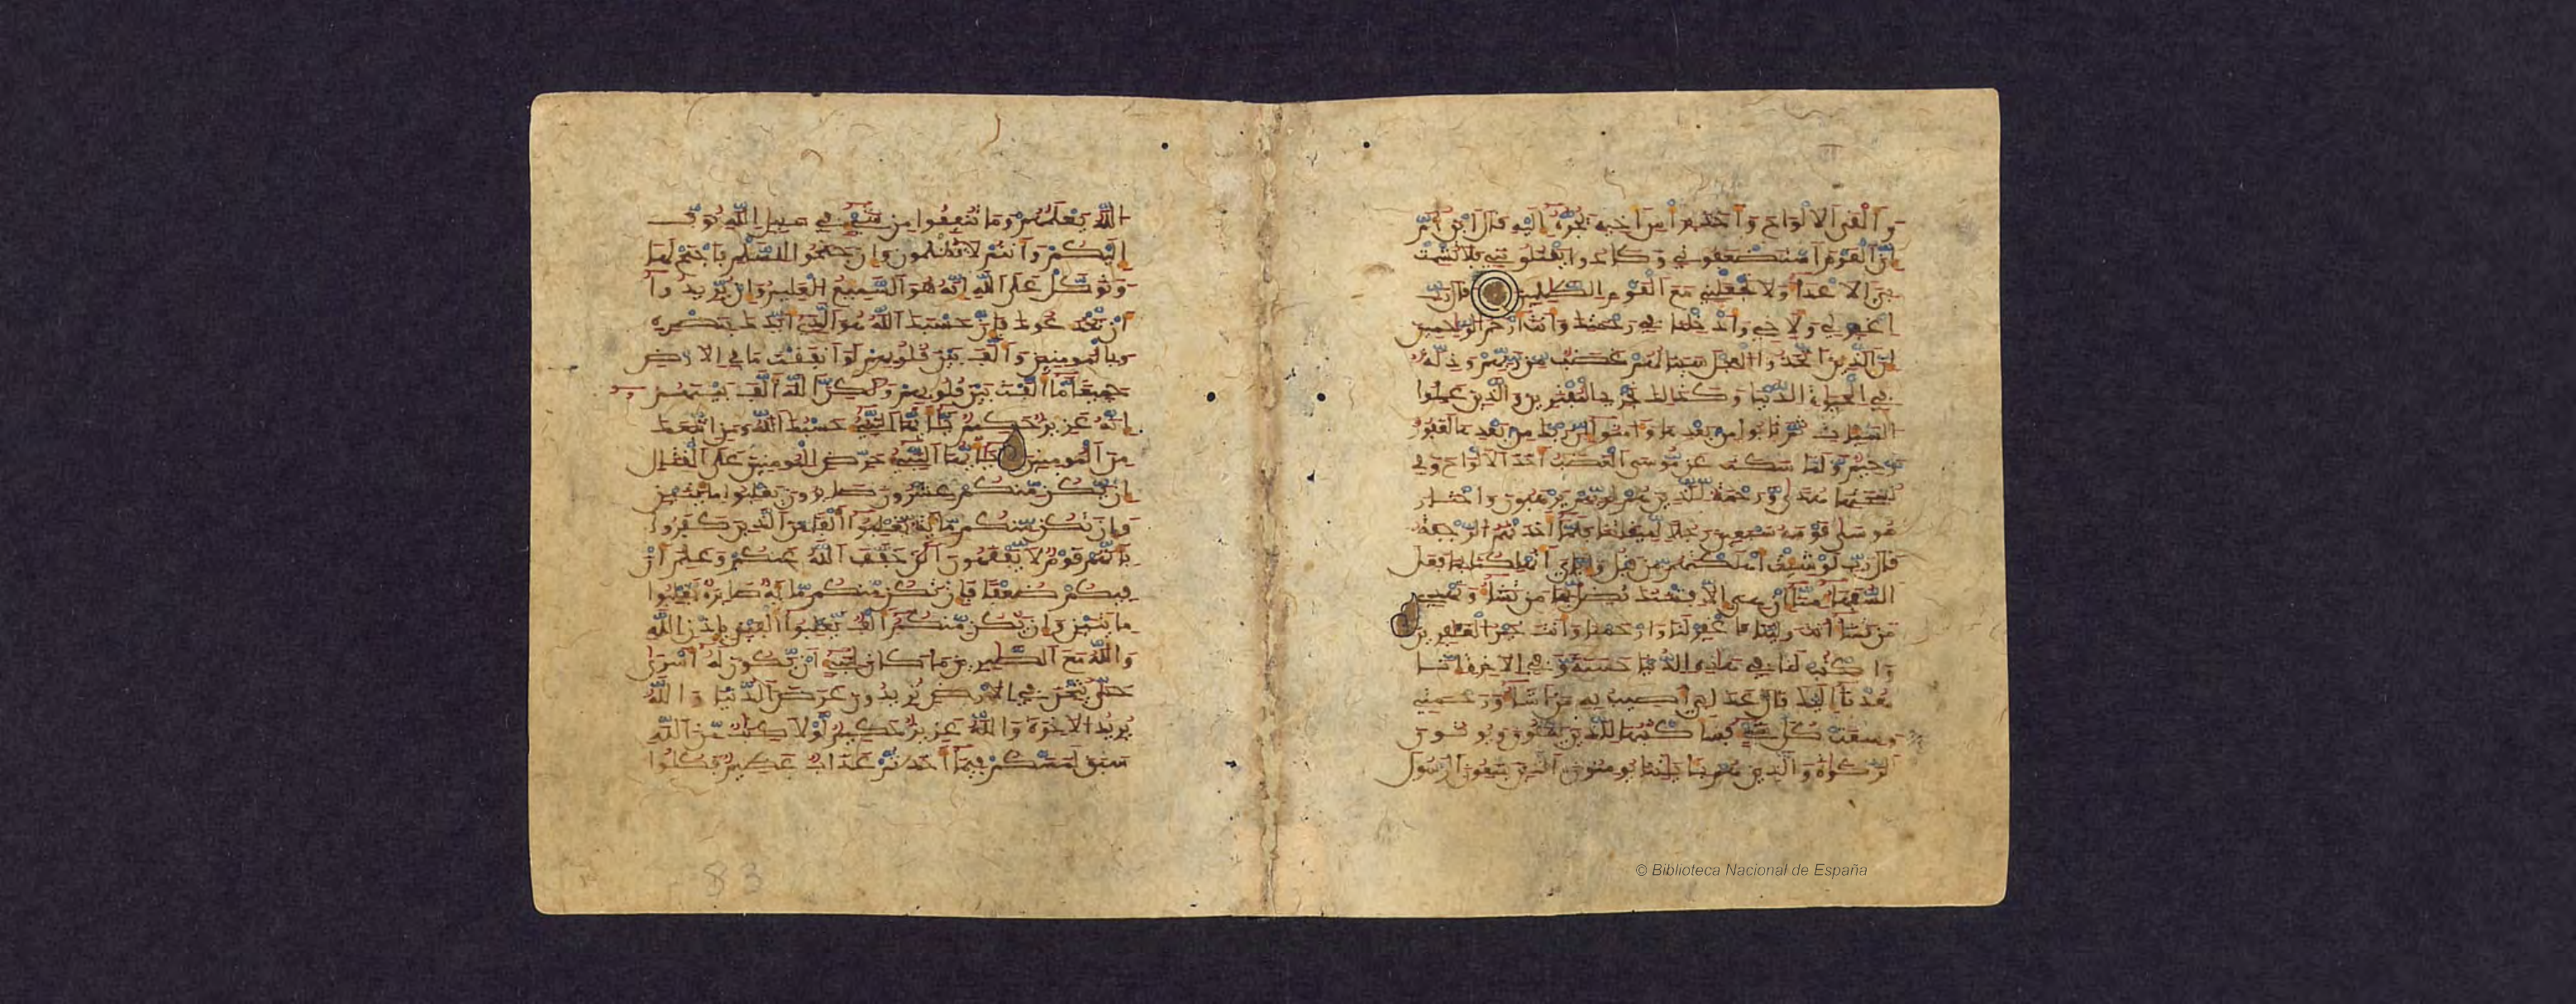 وَأَلْقَى اَلَالْوَاحَ وَأَخَذَ بِرَأْسِ أَخِيهِ يَجُرُّهُ إِلَيْهِ قَالَ اَبْنَ أُمَّ
إِنَّ اَلْقَوْمَ اَسْتَضْعَفُونِي وَكَادُوا يَقْتُلُونَنِي فَلَا تُشْمِتْ
بِيَ اَلَاعْدَآءَ وَلَا تَجْعَلْنِي مَعَ اَلْقَوْمِ اِلظَّلِمِينَ قَالَ رَبِّ
اِغْفِرْ لِي وَلِأَخِي وَأَدْخِلْنَا فِي رَحْمَتِكَ وَأَنتَ أَرْحَمُ اُلرَّحِمِينَ
إِنَّ اَلَّذِينَ اَتَّخَذُوا اُلْعِجْلَ سَيَنَالُهُمْ غَضَبٌ مِّن رَّبِّهِمْ وَذِلَّةٌ
فِي اِلْحَيَوٰةِ اِلدُّنْيَا وَكَذَلِكَ نَجْزِي اِلْمُفْتَرِينَ وَالَّذِينَ عَمِلُوا
اُلسَّيِّاتِ ثُمَّ تَابُوا مِن بَعْدِهَا وَءَامَنُوا إِنَّ رَبَّكَ مِن بَعْدِهَا لَغَفُورٌ
رَّحِيمٌ وَلَمَّا سَكَتَ عَن مُّوسَى اَلْغَضَبُ أَخَذَ اَلَالْوَاحَ وَفِي
نُسْخَتِهَا هُدًى وَرَحْمَةٌ لِّلَّذِينَ هُمْ لِرَبِّهِمْ يَرْهَبُونَ وَاخْتَارَ
مُوسَى قَوْمَهُ سَبْعِينَ رَجُلًا لِّمِيقَتِنَا فَلَمَّآ أَخَذَتْهُمُ اُلرَّجْفَةُ
قَالَ رَبِّ لَوْ شِئْتَ أَهْلَكْتَهُم مِّن قَبْلُ وَإِيَّيَ أَتُهْلِكُنَا بِمَا فَعَلَ
اَلسُّفَهَآءُ مِنَّآ إِنْ هِيَ إِلَّا فِتْنَتُكَ تُضِلُّ بِهَا مَن تَشَآءُ وَتَهْدِي
مَن تَشَآءُ أَنتَ وَلِيُّنَا فَاغْفِرْ لَنَا وَارْحَمْنَا وَأَنتَ خَيْرُ اُلْغَفِرِينَ
وَاكْتُبْ لَنَا فِي هَذِهِ اِلدُّنْيَا حَسَنَةً وَفِي اِلَاخِرَةِ إِنَّا
هُدْنَآ إِلَيْكَ قَالَ عَذَابِيَ أُصِيبُ بِهِ مَنَ أَشَآءُ وَرَحْمَتِي
وَسِعَتْ كُلَّ شَيْءٍ فَسَأَكْتُبُهَا لِلَّذِينَ يَتَّقُونَ وَيُوتُونَ
اَلزَّكَوٰةَ وَالَّذِينَ هُم بِـَٔايَتِنَا يُومِنُونَ اَلَّذِينَ يَتَّبِعُونَ اَلرَّسُولَ
اَللَّهُ يَعْلَمُهُمْ وَمَا تُنفِقُوا مِن شَيْءٍ فِي سَبِيلِ اِللَّهِ يُوَفَّ
إِلَيْكُمْ وَأَنتُمْ لَا تُظْلَمُونَ وَإِن جَنَحُوا لِلسَّلْمِ فَاجْنَحْ لَهَا
وَتَوَكَّلْ عَلَى اَللَّهِ إِنَّهُ هُوَ اَلسَّمِيعُ اُلْعَلِيمُ وَإِن يُرِيدُوا
أَن يَخْدَعُوكَ فَإِنَّ حَسْبَكَ اَللَّهُ هُوَ اَلَّذِي أَيَّدَكَ بِنَصْرِهِ
وَبِالْمُومِنِينَ وَأَلَّفَ بَيْنَ قُلُوبِهِمْ لَوَ اَنفَقْتَ مَا فِي اِلَارْضِ
جَمِيعًا مَّآ أَلَّفْتَ بَيْنَ قُلُوبِهِمْ وَلَكِنَّ اَللَّهَ أَلَّفَ بَيْنَهُمْ
إِنَّهُ عَزِيزٌ حَكِيمٌ يَأَيُّهَا اَلنَّبِيءُ حَسْبُكَ اَللَّهُ وَمَنِ اِتَّبَعَكَ
مِنَ اَلْمُومِنِينَ يَأَيُّهَا اَلنَّبِيءُ حَرِّضِ اِلْمُومِنِينَ عَلَى اَلْقِتَالِ
إِن يَكُن مِّنكُمْ عِشْرُونَ صَبِرُونَ يَغْلِبُوا مِاْئَتَيْنِ
وَإِن تَكُن مِّنكُم مِّاْئَةٌ يَغْلِبُوا أَلْفًا مِّنَ اَلَّذِينَ كَفَرُوا
بِأَنَّهُمْ قَوْمٌ لَّا يَفْقَهُونَ اَلَنَ خَفَّفَ اَللَّهُ عَنكُمْ وَعَلِمَ أَنَّ
فِيكُمْ ضُعْفًا فَإِن تَكُن مِّنكُم مِّاْئَةٌ صَابِرَةٌ يَغْلِبُوا
مِاْئَتَيْنِ وَإِن يَكُن مِّنكُمُ أَلْفٌ يَغْلِبُوا أَلْفَيْنِ بِإِذْنِ اِللَّهِ
وَاللَّهُ مَعَ اَلصَّبِرِينَ مَا كَانَ لِنَبِيءٍ اَنْ يَّكُونَ لَهُ أَسْرَى
حَتَّى يُثْخِنَ فِي اِلَارْضِ تُرِيدُونَ عَرَضَ اَلدُّنْيَا وَاللَّهُ
يُرِيدُ اُلَاخِرَةَ وَاللَّهُ عَزِيزٌ حَكِيمٌ لَّوْلَا كِتَبٌ مِّنَ اَللَّهِ
سَبَقَ لَمَسَّكُمْ فِيمَآ أَخَذتُّمْ عَذَابٌ عَظِيمٌ فَكُلُوا
83
© Biblioteca Nacional de España